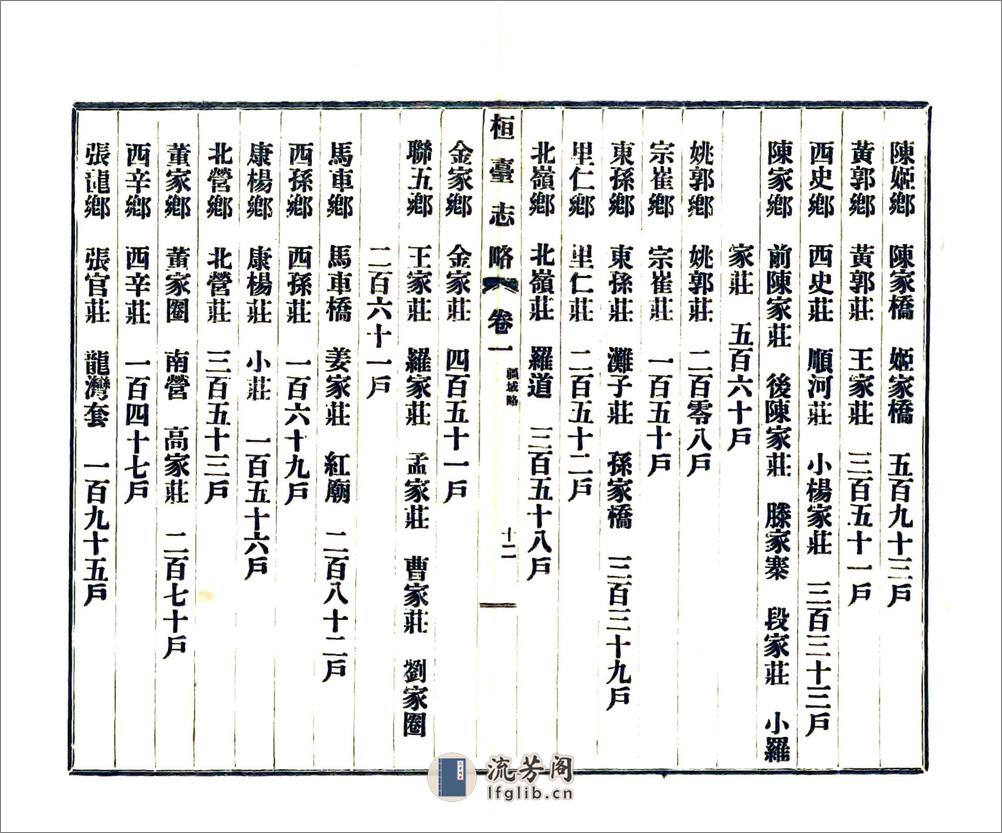 陳姬鄉 陳家橋 姬家橋 五百九十三戶
黃郭鄉 黃郭莊 王家莊 三百五十一戶
西史鄉 西史莊 順河莊 小楊家莊 三百三十三戶
陳家鄉 前陳家莊 後陳家莊 滕家寨 段家莊 小羅
家莊 五百六十戶
姚郭鄉 姚郭莊 二百零八戶
宗崔鄉 宗崔莊 一百五十戶
東孫鄉 東孫莊 灘子莊 孫家橋 三百三十九戶
里仁鄉 里仁莊 二百五十二戶
北嶺鄉 北嶺莊 羅道 三百五十八戶
桓臺志略 卷一 疆域略 十二
金家鄉 金家莊 四百五十一戶
聯五鄉 王家莊 羅家莊 孟家莊 曹家莊 劉家圈
二百六十一戶
馬車鄉 馬車橋 姜家莊 紅廟 二百八十二戶
西孫鄉 西孫莊 一百六十九戶
康楊鄉 康楊莊 小莊 一百五十六戶
北營鄉 北營莊 三百五十三戶
董家鄉 董家圈 南營 高家莊 二百七十戶
西辛鄉 西辛莊 一百四十七戶
張龍鄉 張官莊 龍灣套 一百九十五戶
流芳阁
lfglib.cn